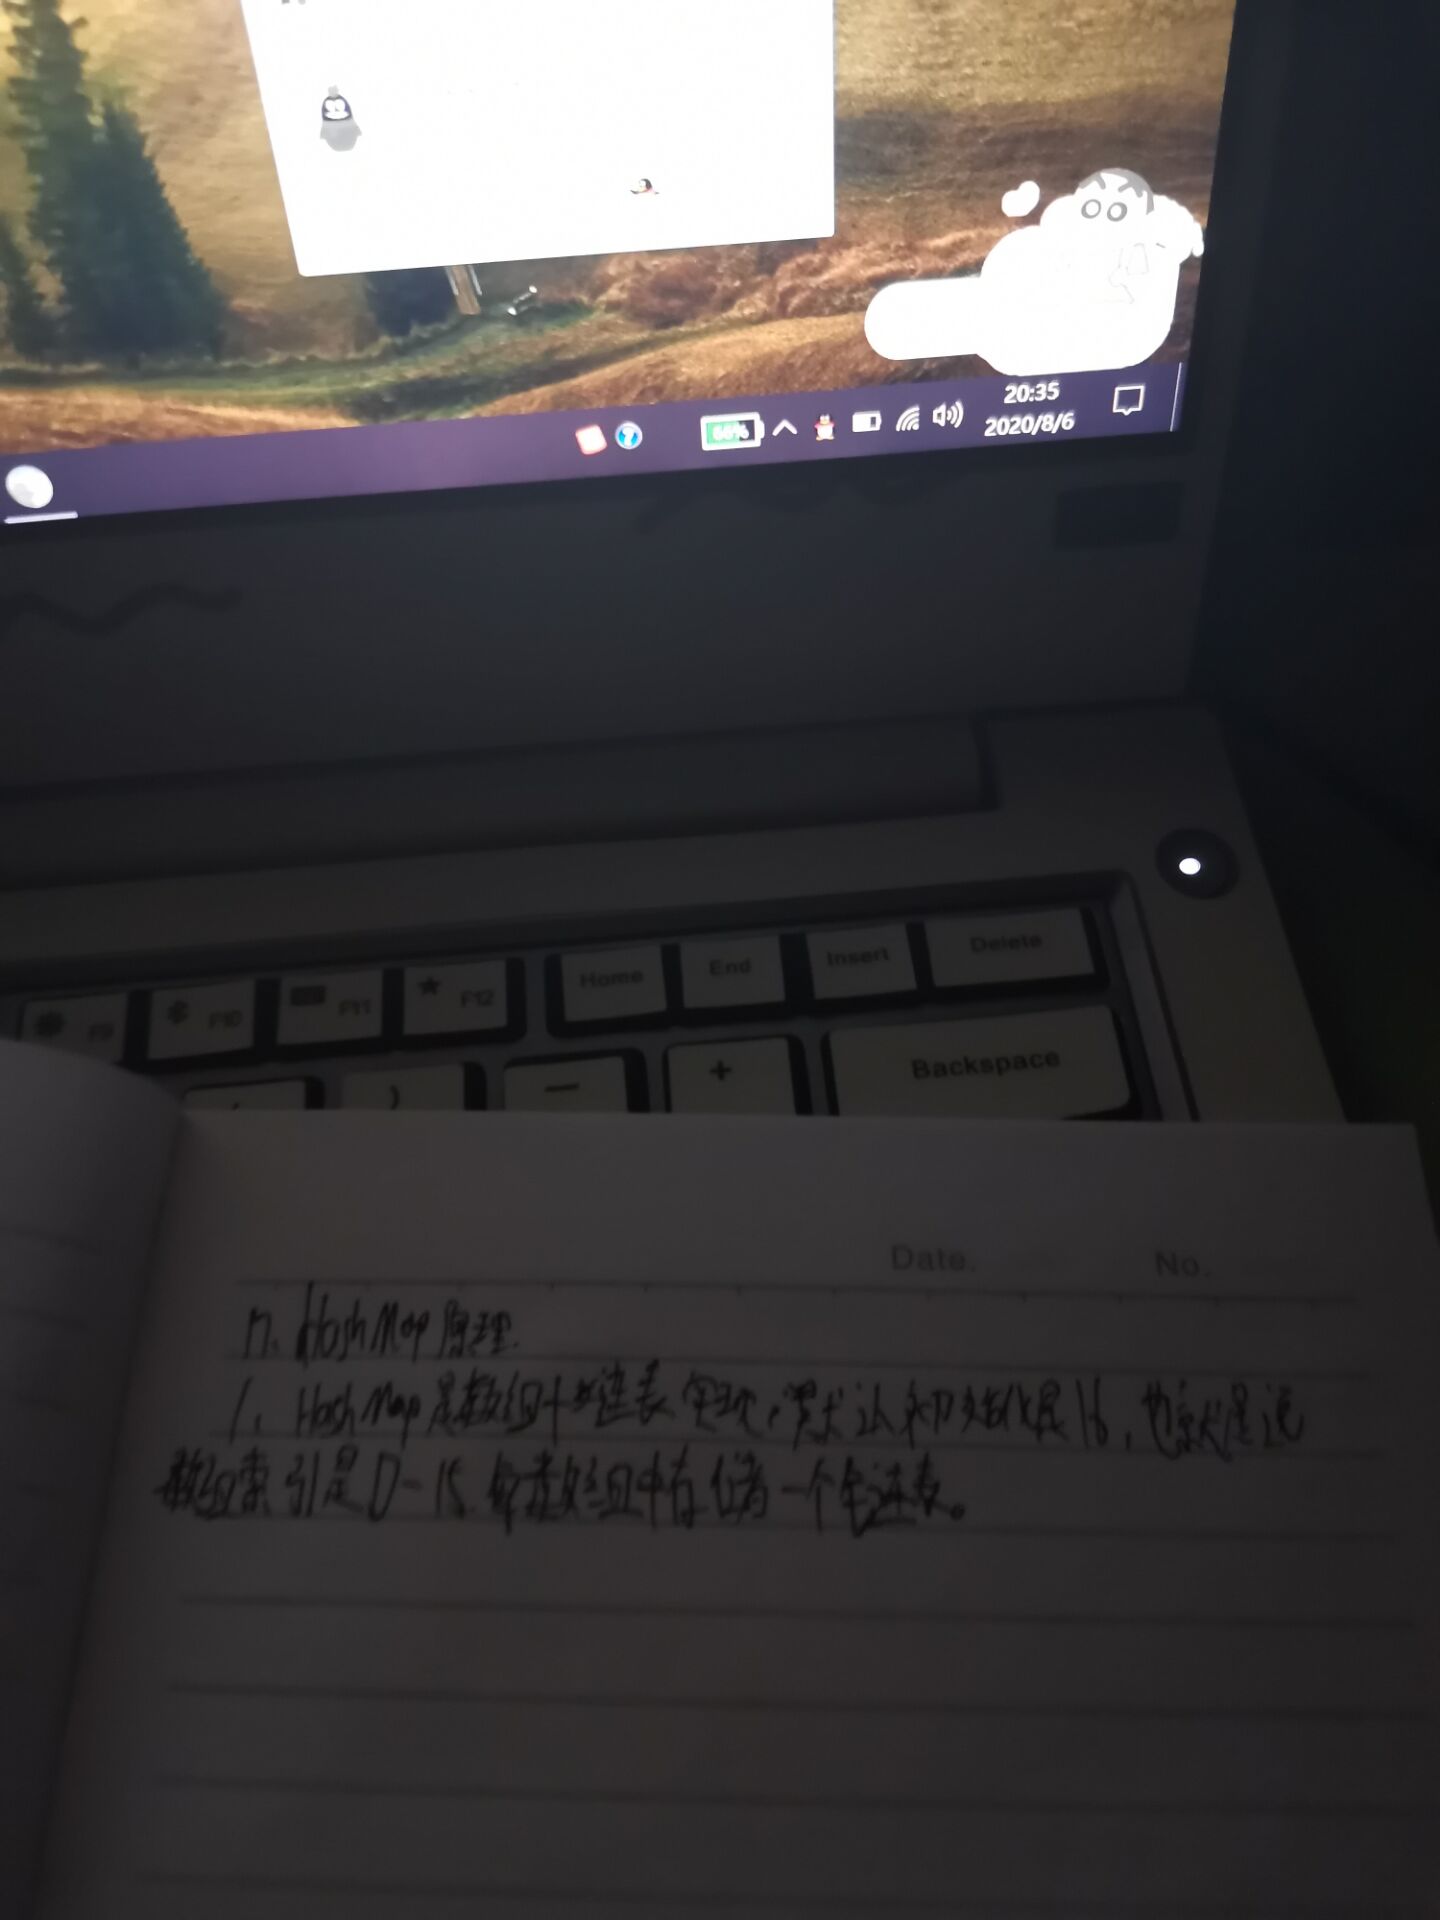 66%
20:35
2020/8/6
F9 F10 F11 F12 Home End Insert Delete
( ) — + Backspace
Date. No.
17. HashMap原理.
1. HashMap是数组+链表实现，默认初始化是16，也就是说
数组索引是0-15. 每个数组中存储着一个单链表。